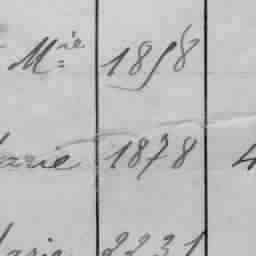 Mie 1858
arie 1878 4
arie 2231